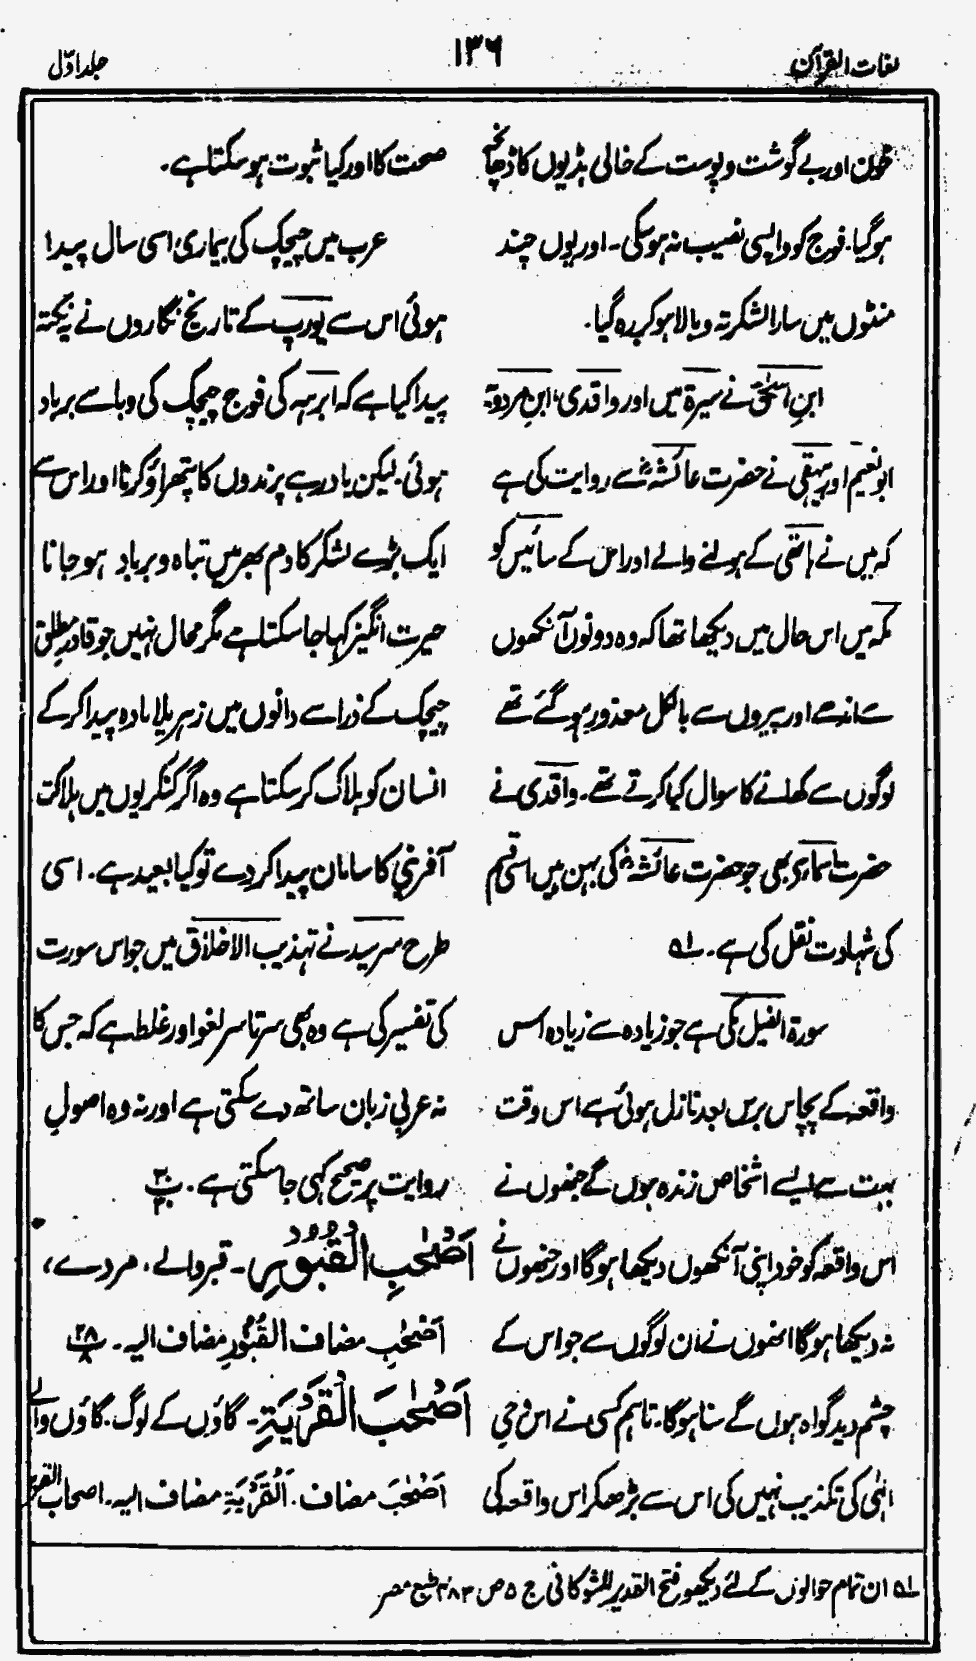 لغات القرآن
۱۳۶
جلد اوّل
خون اور بے گوشت و پوست کے خالی ہڈیوں کا ڈھانچہ
ہوگیا۔ فوج کو واپسی نصیب نہ ہوسکی۔ اور یوں چند
منٹوں میں سارا لشکر تہ و بالا ہو کر رہ گیا۔
ابنِ اسحٰق نے سیرۃ میں اور واقدی، ابنِ مردویہ
ابو نعیم اور بیہقی نے حضرت عائشہؓ سے روایت کی ہے
کہ میں نے ہاتھی کے ہولنے والے اور اس کے سائیس کو
مکہ میں اس حال میں دیکھا تھا کہ وہ دونوں آنکھوں
سے اندھے اور پیروں سے بالکل معذور ہو گئے تھے
لوگوں سے کھانے کا سوال کیا کرتے تھے۔ واقدی نے
حضرت اسماء بھی جو حضرت عائشہؓ کی بہن ہیں اسی قسم
کی شہادت نقل کی ہے۔ لہ
سورۃ الفیل مکی ہے جو زیادہ سے زیادہ اس
واقعہ کے پچاس برس بعد نازل ہوئی ہے اس وقت
بہت سے ایسے اشخاص زندہ ہوں گے جنھوں نے
اس واقعہ کو خود اپنی آنکھوں دیکھا ہوگا اور جنھوں نے
نہ دیکھا ہوگا انھوں نے ان لوگوں سے جو اس کے
چشم دید گواہ ہوں گے سنا ہوگا۔ تاہم کسی نے اس وحیِ
الٰہی کی تکذیب نہیں کی اس سے بڑھ کر اس واقعہ کی
صحت کا اور کیا ثبوت ہو سکتا ہے۔
عرب میں چیچک کی بیماری اسی سال پیدا
ہوئی اس سے یورپ کے تاریخ نگاروں نے یہ نکتہ
پیدا کیا ہے کہ ابرہہ کی فوج چیچک کی وبا سے برباد
ہوئی۔ لیکن یاد رہے پرندوں کا پتھراؤ کرنا اور اس سے
ایک بڑے لشکر کا دم بھر میں تباہ و برباد ہو جانا
حیرت انگیز کہا جا سکتا ہے مگر محال نہیں جو قادرِ مطلق
چیچک کے ذرا سے دانوں میں زہریلا مادہ پیدا کر کے
انسان کو ہلاک کر سکتا ہے وہ اگر کنکریوں میں ہلاکت
آفرینی کا سامان پیدا کر دے تو کیا بعید ہے۔ اسی
طرح سرسید نے تہذیب الاخلاق میں جو اس سورت
کی تفسیر کی ہے وہ بھی سرتاسر لغو اور غلط ہے کہ جس کا
نہ عربی زبان ساتھ دے سکتی ہے اور نہ وہ اصولِ
روایت پر صحیح کہی جا سکتی ہے۔
اَصْحٰبِ الْقُبُورِ۔ قبر والے، مردے،
اَصْحٰبِ مضاف الْقُبُورِ مضاف الیہ۔ ۲۸/۸
اَصْحٰبَ الْقَرْیَةِ۔ گاؤں کے لوگ۔ گاؤں والے
اَصْحٰبَ مضاف۔ اَلْقَرْیَةِ مضاف الیہ۔ اصحاب القریہ
لہ ان تمام حوالوں کے لئے دیکھو فتح القدیر للشوکانی ج ۵ ص ۴۸۳ طبع مصر